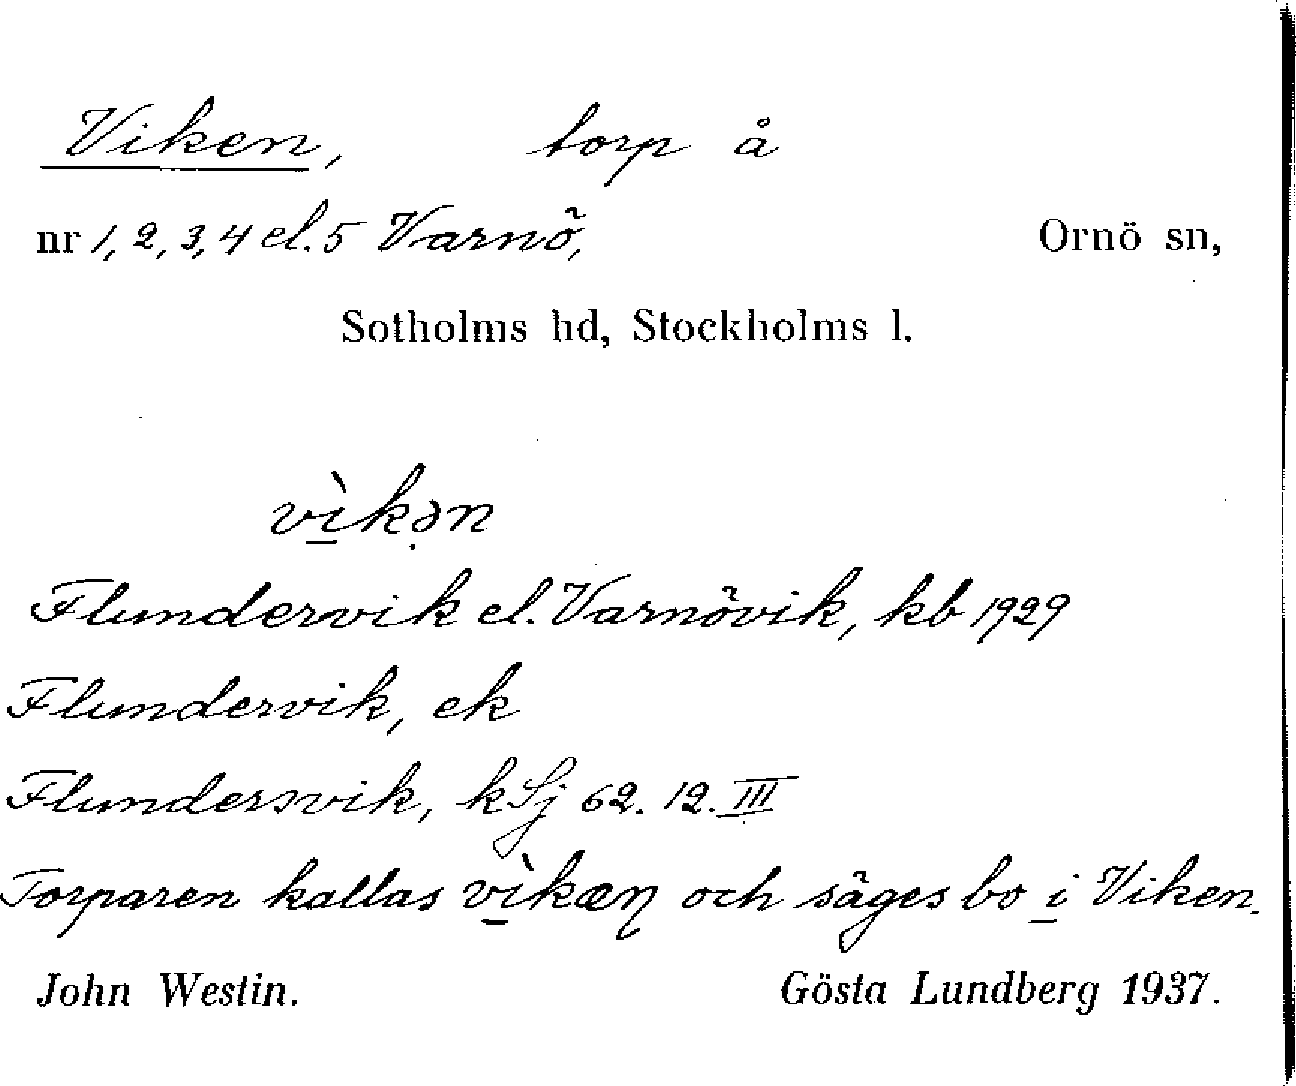 Viken, torp å
nr 1, 2, 3, 4 el. 5 Varnö, Ornö sn,
Sotholms hd, Stockholms l.
vì̱kə̣n
Flundervik el. Varnövik, kb 1929
Flundervik, ek
Flundersvik, kSj 62. 12. III
Torparen kallas vì̱kæɳ och säges bo i̱ Viken.
John Westin. Gösta Lundberg 1937.